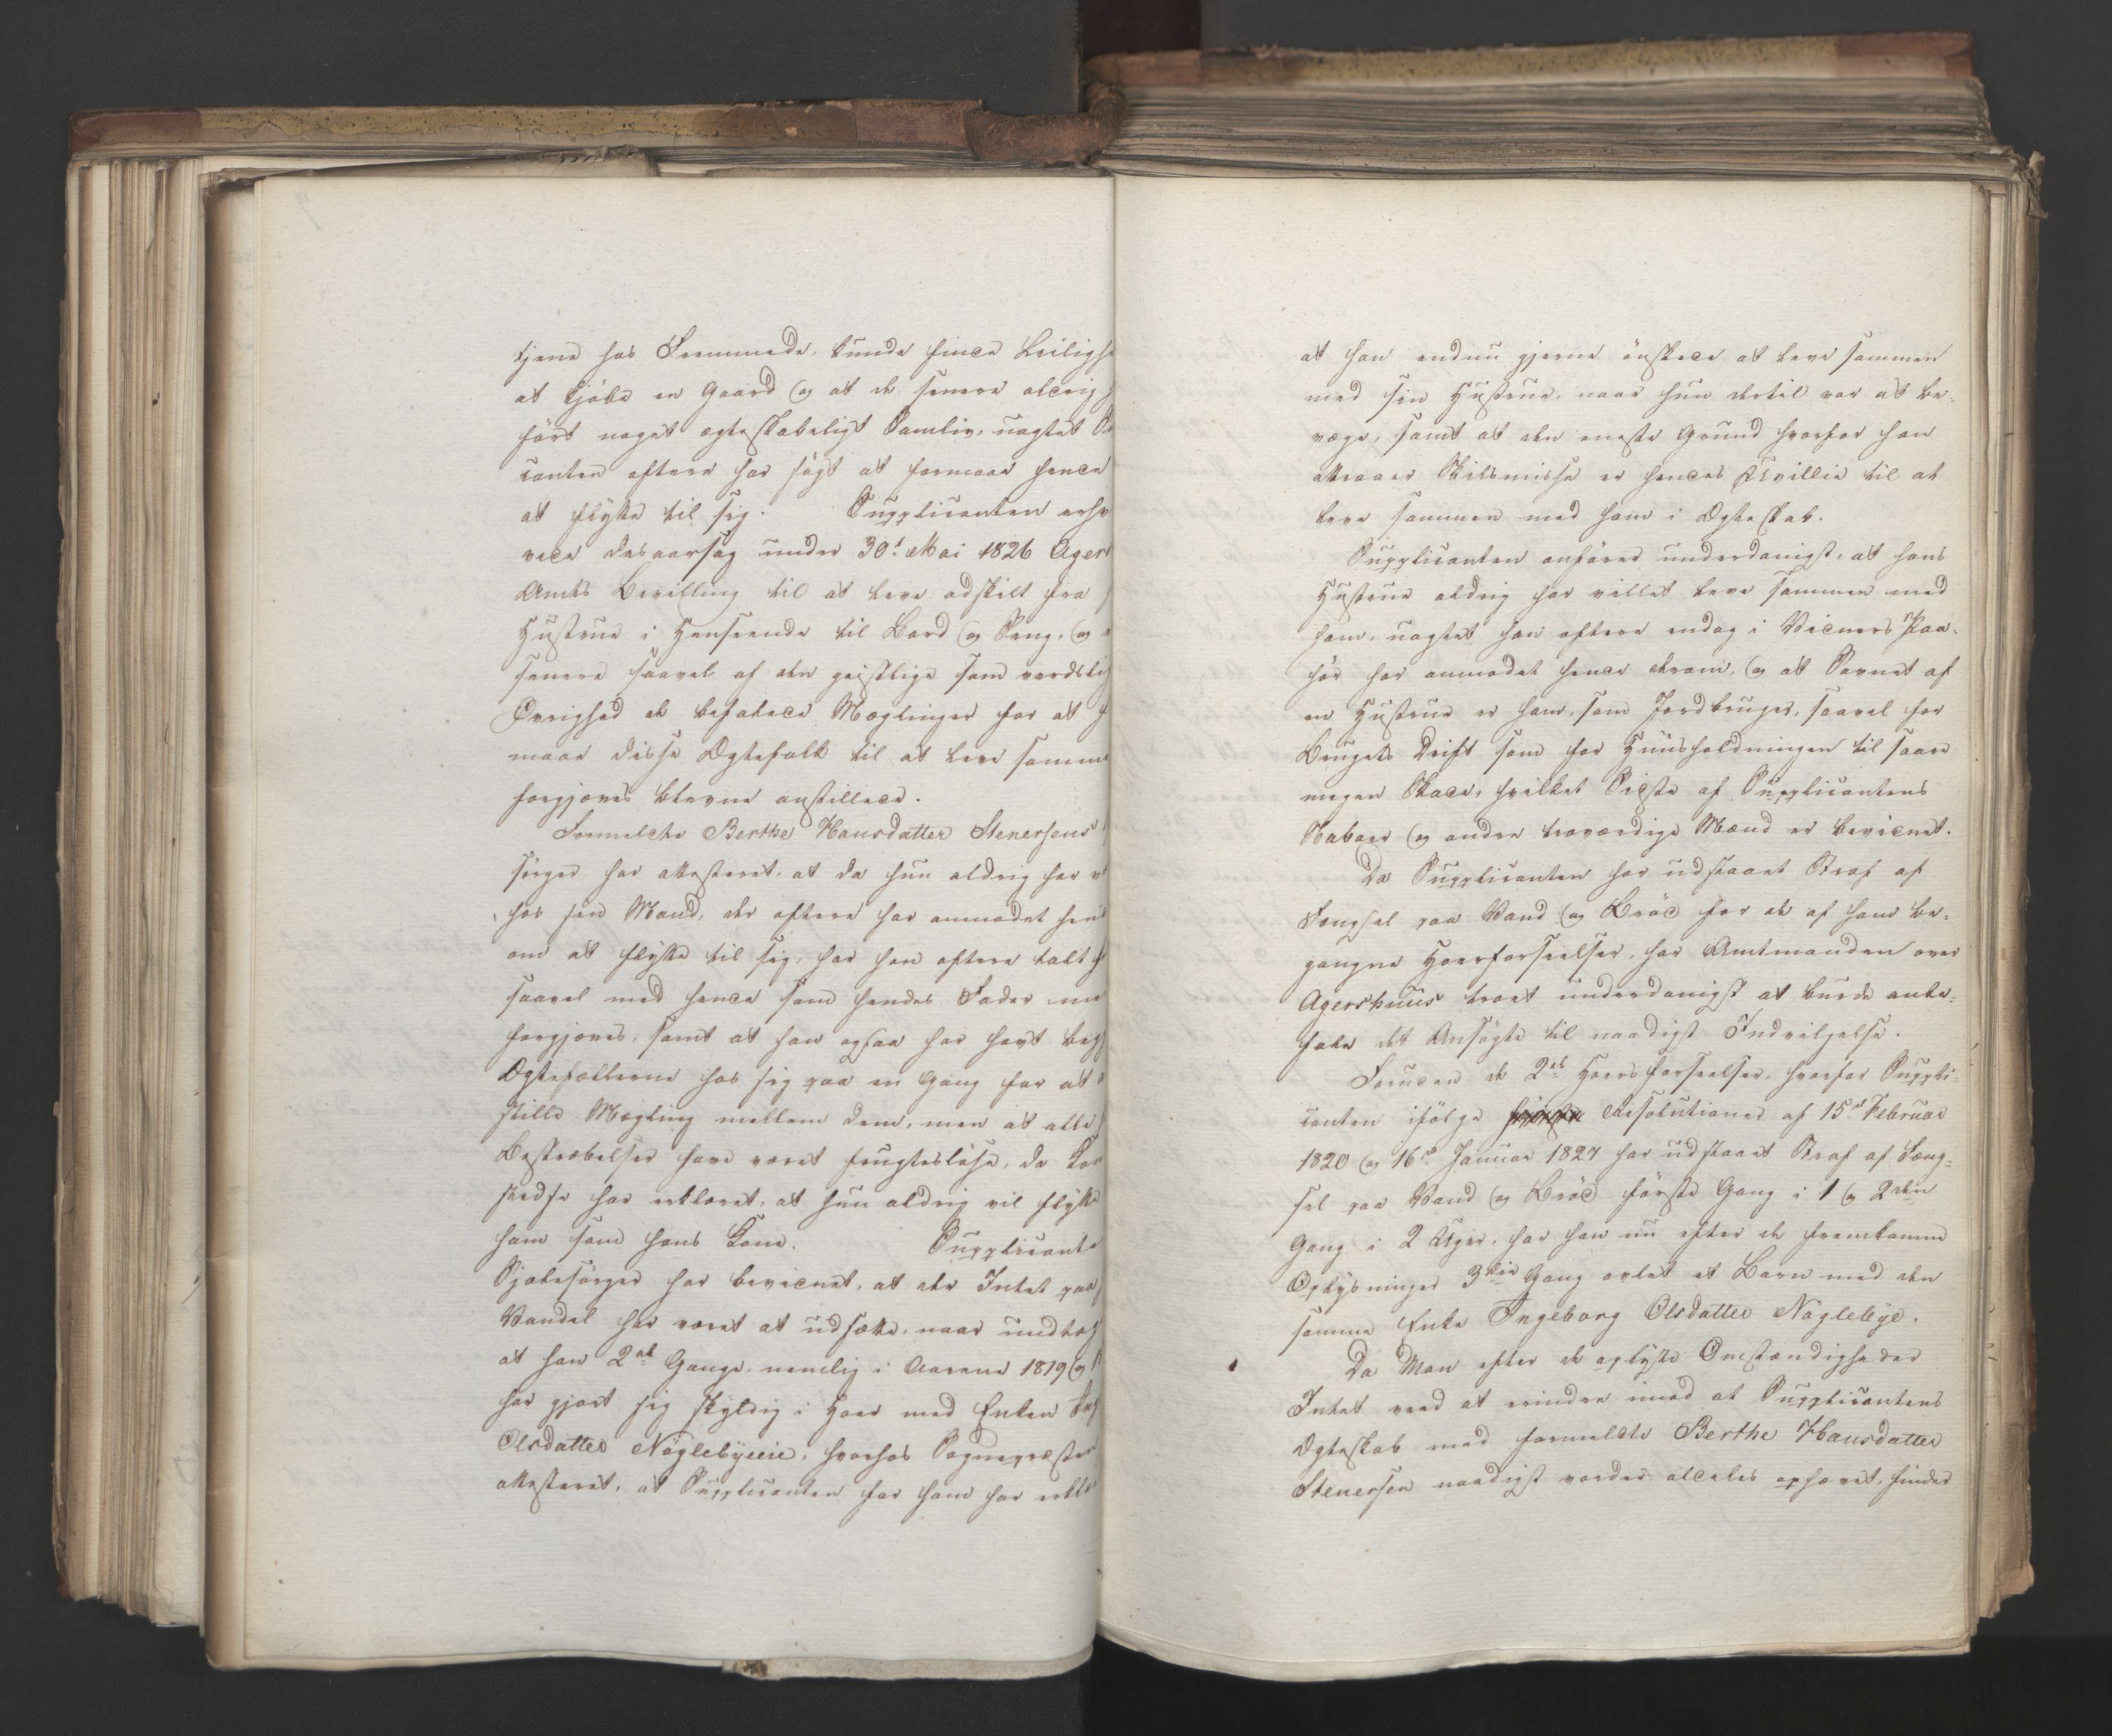 tjene hos Fremmede, kunde finde Leilighe
at kjöbe en Gaard og at de senere aldrig
fört noget ægteskabeligt Samliv, uagtet
canten oftere har sögt at formaae hende
at flytte til sig. Supplicanten erhv
vede desaarsag under 30t Mai 1826 Agers
Amts Bevilling til at leve adskilt fra
Hustrue i Henseende til Bord og Seng, og
senere saavel af den geistlige som verdslig
Övrighed de befalede Mæglinger for at
maae disse Ægtefolk til at leve samme
forgjæves blevne anstillede.
Formeldte Berthe Hansdatter Stenersens
sörger har attesteret, at da hun aldrig har
hos sin Mand, der oftere har anmodet hen
om at flytte til sig, har han oftere talt
saavel med hende som hendes Fader
forgjæves, samt at han ogsaa har havt beg
Ægtefællerne hos sig paa en Gang for at
stille Mægling mellem dem, men at alle
Bestræbelser have været frugteslöse, da
stedse har erklæret, at hun aldrig vil flytte
ham som hans Kone. Supplicante
Sjælesörger har bevidnet, at der Intet paa
Vandel har været at udsætte, naar undtag
at han 2de Gange, nemlig i Aarene 1819 og
har gjort sig skyldig i Hoer med Enken Ing
Olsdatter Nöglebyeeie, hvorhos Sognepræsten
attesteret, at Supplicanten for ham har erklæ
at han endnu gjerne önskede at leve sammen
med sin Hustrue, naar hun dertil var at be-
væge, samt at den eneste Grund hvorfor han
attraaer Skilsmisse er hendes Uvillie til at
leve sammen med ham i Ægteskab.
Supplicanten anförer underdanigst, at hans
Hustrue aldrig har villet leve sammen med
ham, uagtet han oftere endog i Vidners Paa-
hör har anmodet hende derom, og at Savnet af
en Hustrue er ham, som Jordbruger, saavel for
Brugets Drift som for Huusholdningen til saare
megen Skade, hvilket Sidste af Supplicantens
Naboer og andre troværdige Mænd er bevidnet.
Da Supplicanten har udstaaet Straf af
Fængsel paa Vand og Bröd for de af ham be-
gangne Hoerforseelser, har Amtmanden over
Agershuus troet underdanigst at burde anbe-
fale det Ansögte til naadigst Indvilgelse.
Foruden de 2de Hoersforseelser, hvorfor Suppli-
canten ifölge Resolutioner af 15de Februar
1820 og 16de Januar 1827 har udstaaet Straf af Fæng-
sel paa Vand og Bröd förste Gang i 1 og 2den
Gang i 2 Uger, har han nu efter de fremkomne
Oplysninger 3die Gang avlet et Barn med den
samme Enke Ingeborg Olsdatter Nöglebye.
Da Man efter de oplyste Omstændigheder
Intet veed at erindre imod at Supplicantens
Ægteskab med formeldte Berthe Hansdatter
Stenersen naadigst vorder aldeles ophævet, finder